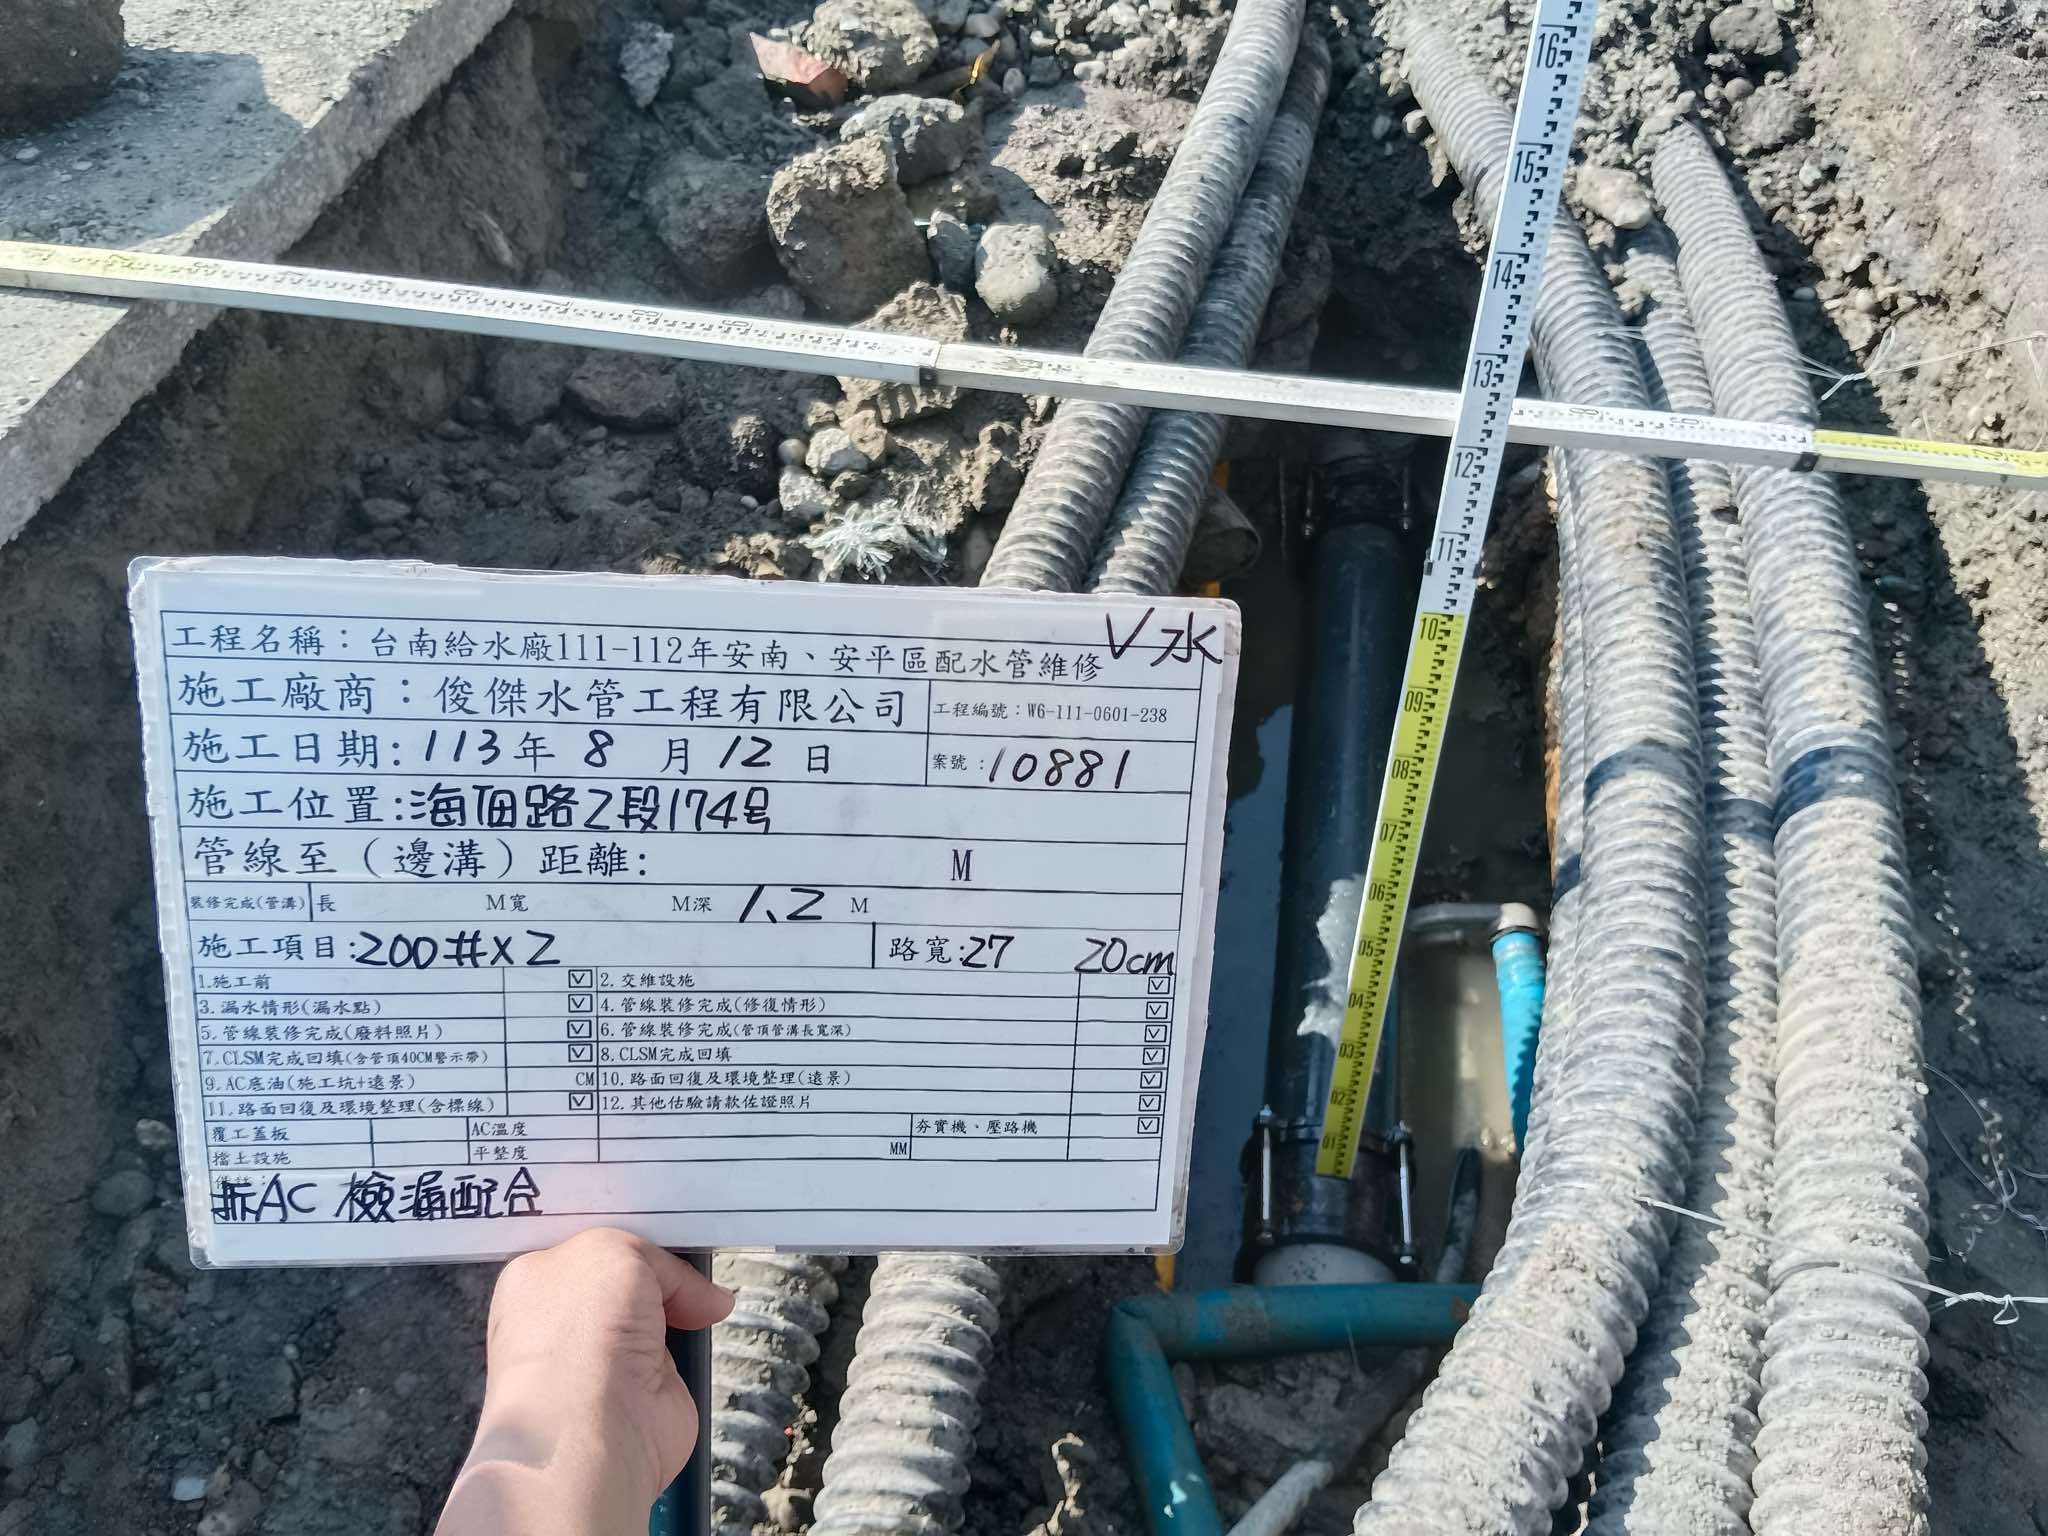 V水
工程名稱：台南給水廠111-112年安南、安平區配水管維修
施工廠商：俊傑水管工程有限公司 工程編號：W6-111-0601-238
施工日期：113年 8 月 12 日 案號：10881
施工位置：海佃路2段174号
管線至（邊溝）距離： M
裝修完成(管溝) 長 M寬 M深 1.2 M
施工項目：200#x2 路寬：27 20cm
1.施工前 ☑ 2.交維設施 ☑
3.漏水情形(漏水點) ☑ 4.管線裝修完成(修復情形) ☑
5.管線裝修完成(廢料照片) ☑ 6.管線裝修完成(管頂管溝長寬深) ☑
7.CLSM完成回填(含管頂40CM警示帶) ☑ 8.CLSM完成回填 ☑
9.AC底油(施工坑+遠景) CM 10.路面回復及環境整理(遠景) ☑
11.路面回復及環境整理(含標線) ☑ 12.其他估驗請款佐證照片 ☑
覆工蓋板 AC溫度 夯實機、壓路機 ☑
擋土設施 平整度 MM
拆AC 檢漏配合
16
15
14
13
12
11
10
09
08
07
06
05
04
03
02
01